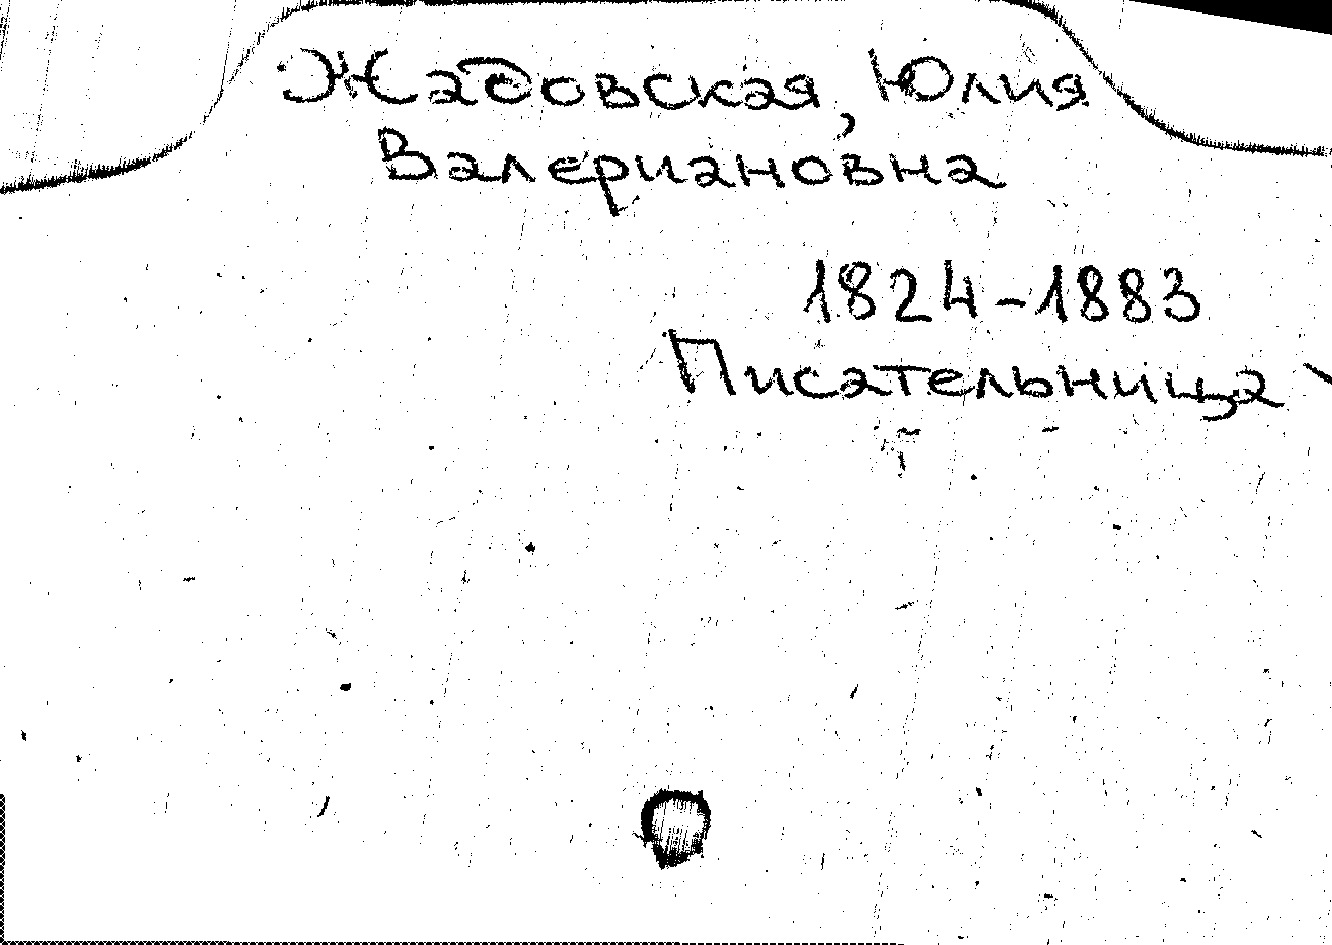 Жадовская, Юлия
Валериановна
1824-1883
Писательница